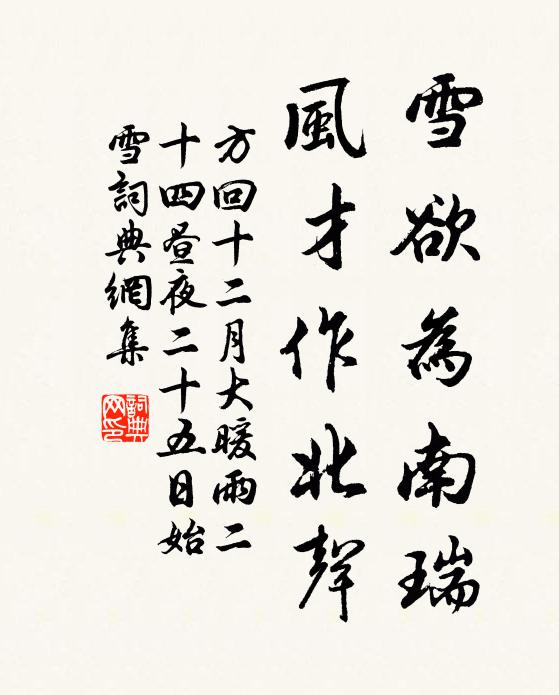 雪欲為南瑞
風才作北聲
方回十二月大暖雨二
十四昼夜二十五日始
雪詞典網集
詞典网印